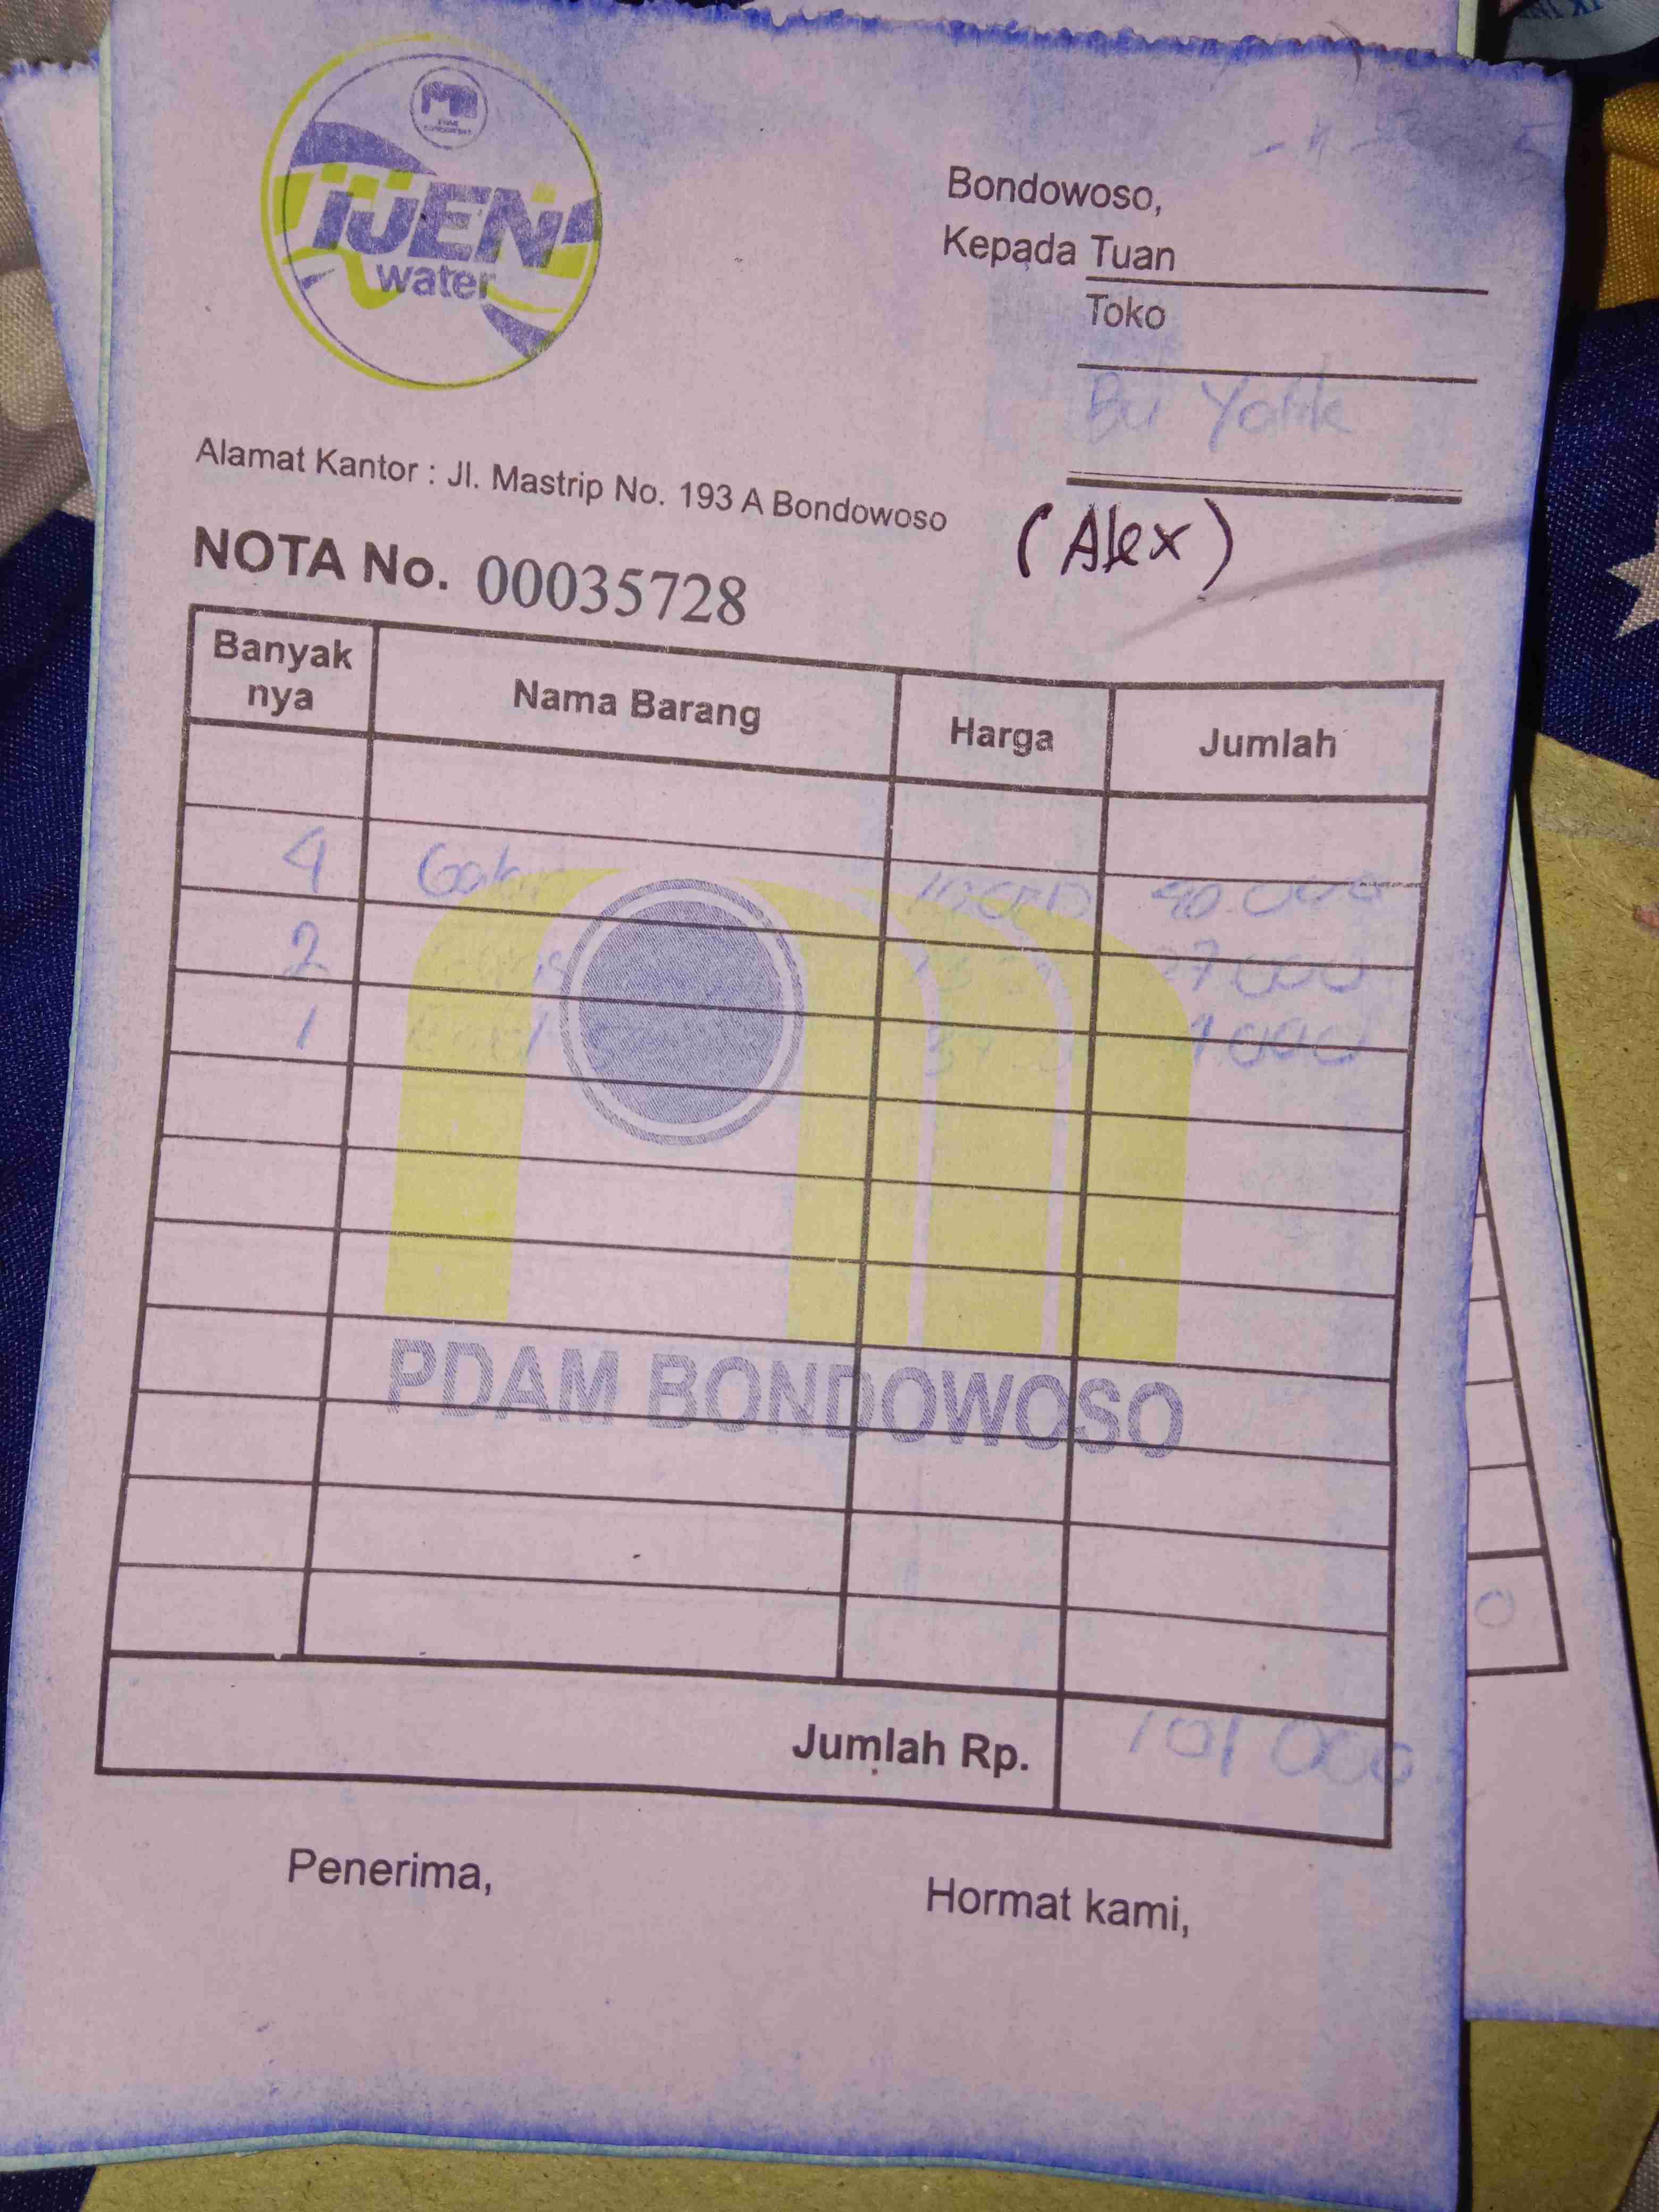 IJEN
water
Bondowoso,
Kepada Tuan
Toko
Bu
Alamat Kantor : Jl. Mastrip No. 193 A Bondowoso
(Alex)
NOTA No. 00035728
Banyak nya Nama Barang Harga Jumlah
4 10.000 40.000
2
1
PDAM BONDOWOSO
Jumlah Rp. 101 000
Penerima, Hormat kami,